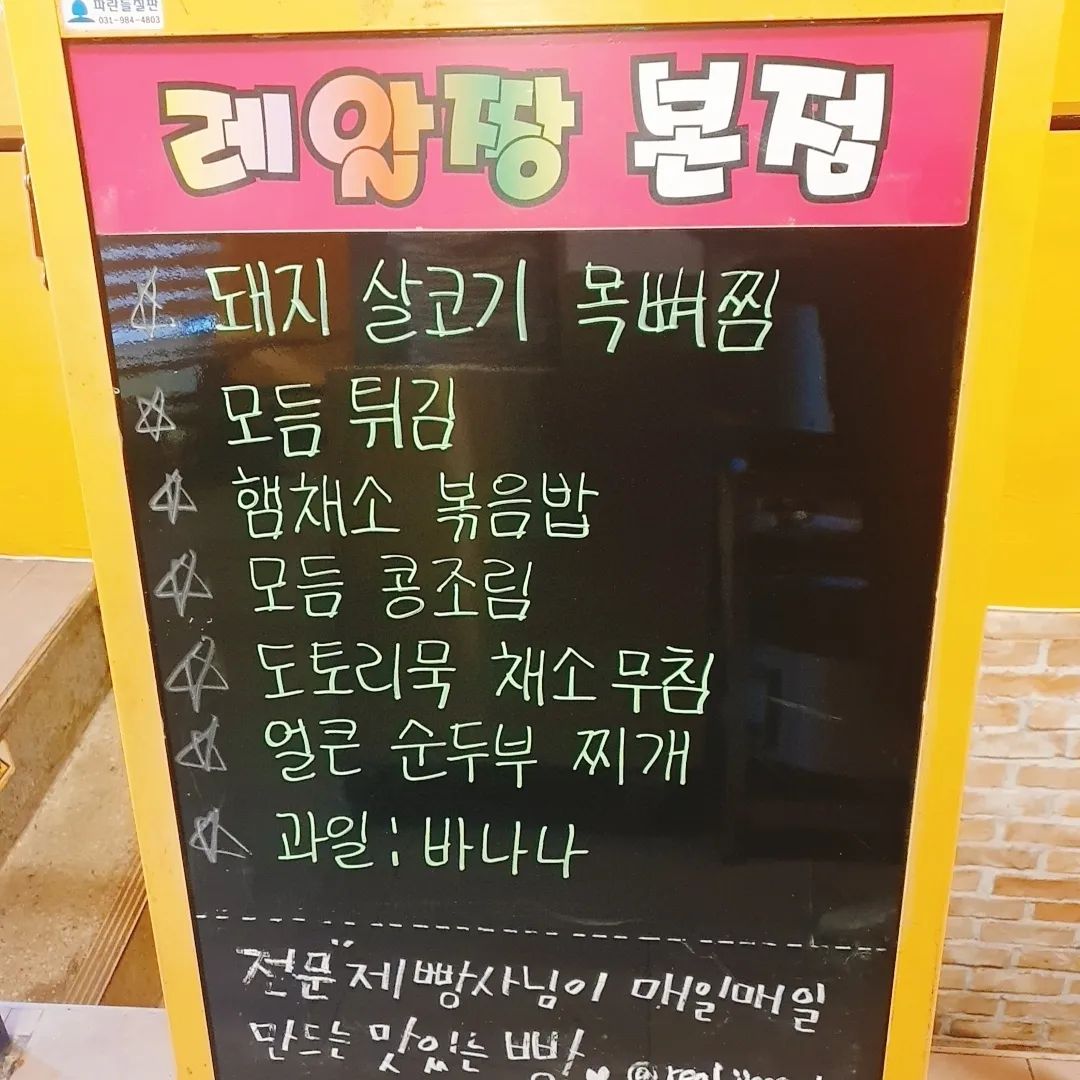 파란들칠판
031-984-4803
레알짱 본점
돼지 살코기 목뼈찜
모듬 튀김
햄채소 볶음밥
모듬 콩조림
도토리묵 채소 무침
얼큰 순두부 찌개
과일 : 바나나
전문 제빵사님이 매일매일
만드는 맛있는 빵